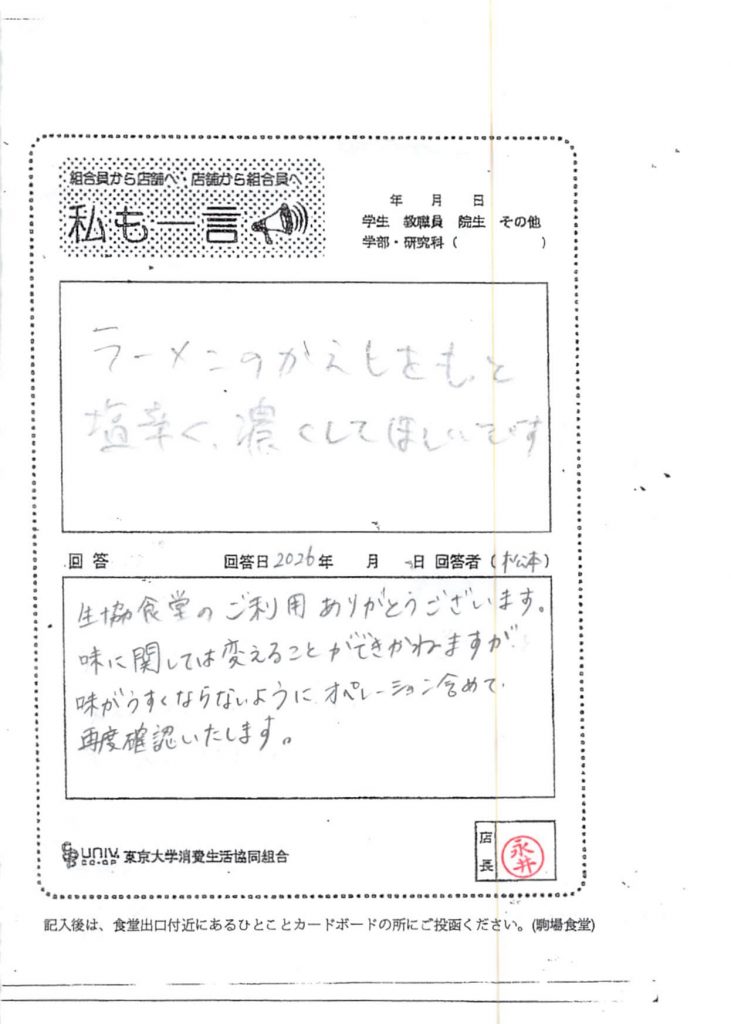 組合員から店舗へ・店舗から組合員へ
私も一言
年 月 日
学生 教職員 院生 その他
学部・研究科( )
ラーメンのかえしをもっと
塩辛く、濃くしてほしいです
回答 回答日 2026年 月 日 回答者(松本)
生協食堂のご利用ありがとうございます。
味に関しては変えることができかねますが
味がうすくならないようにオペレーション含めて、
再度確認いたします。
UNIV. CO-OP 東京大学消費生活協同組合
店長 永井
記入後は、食堂出口付近にあるひとことカードボードの所にご投函ください。(駒場食堂)